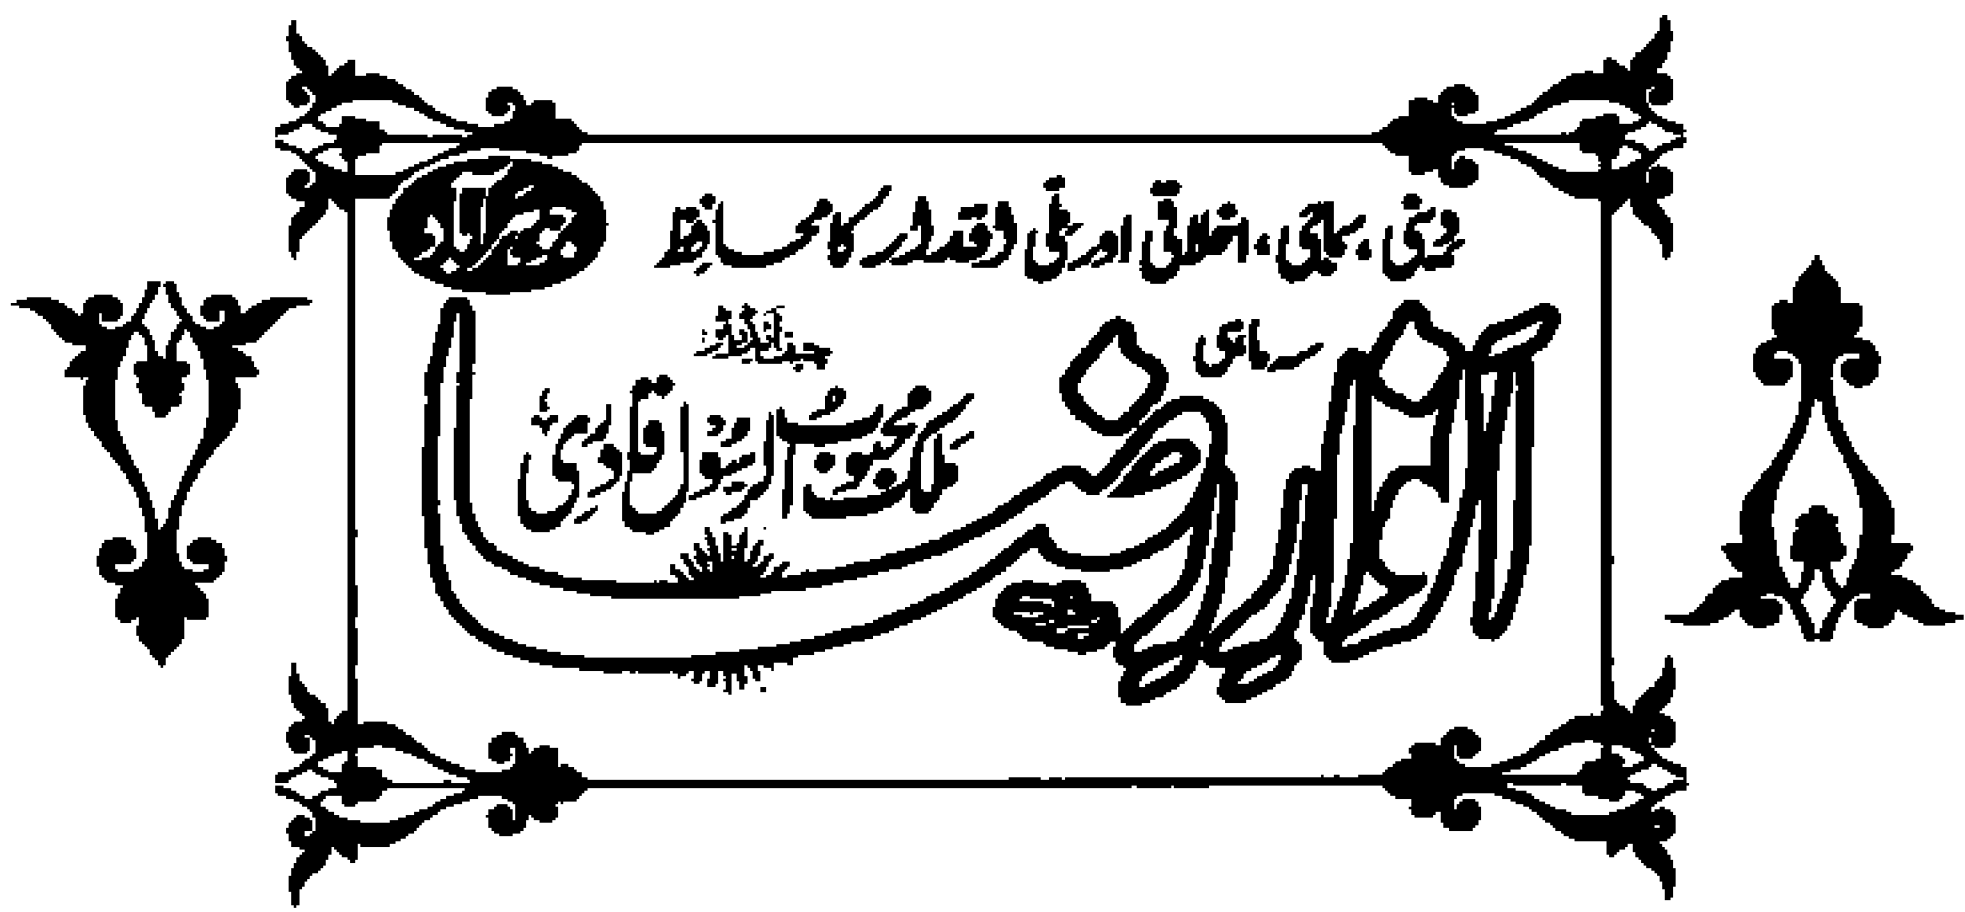 دینی، سماجی، اخلاقی اور ملی اقدار کا محافظ
جوہر آباد
سہ ماہی
انوار رضا
چیف ایڈیٹر
ملک محبوب الرسول قادری